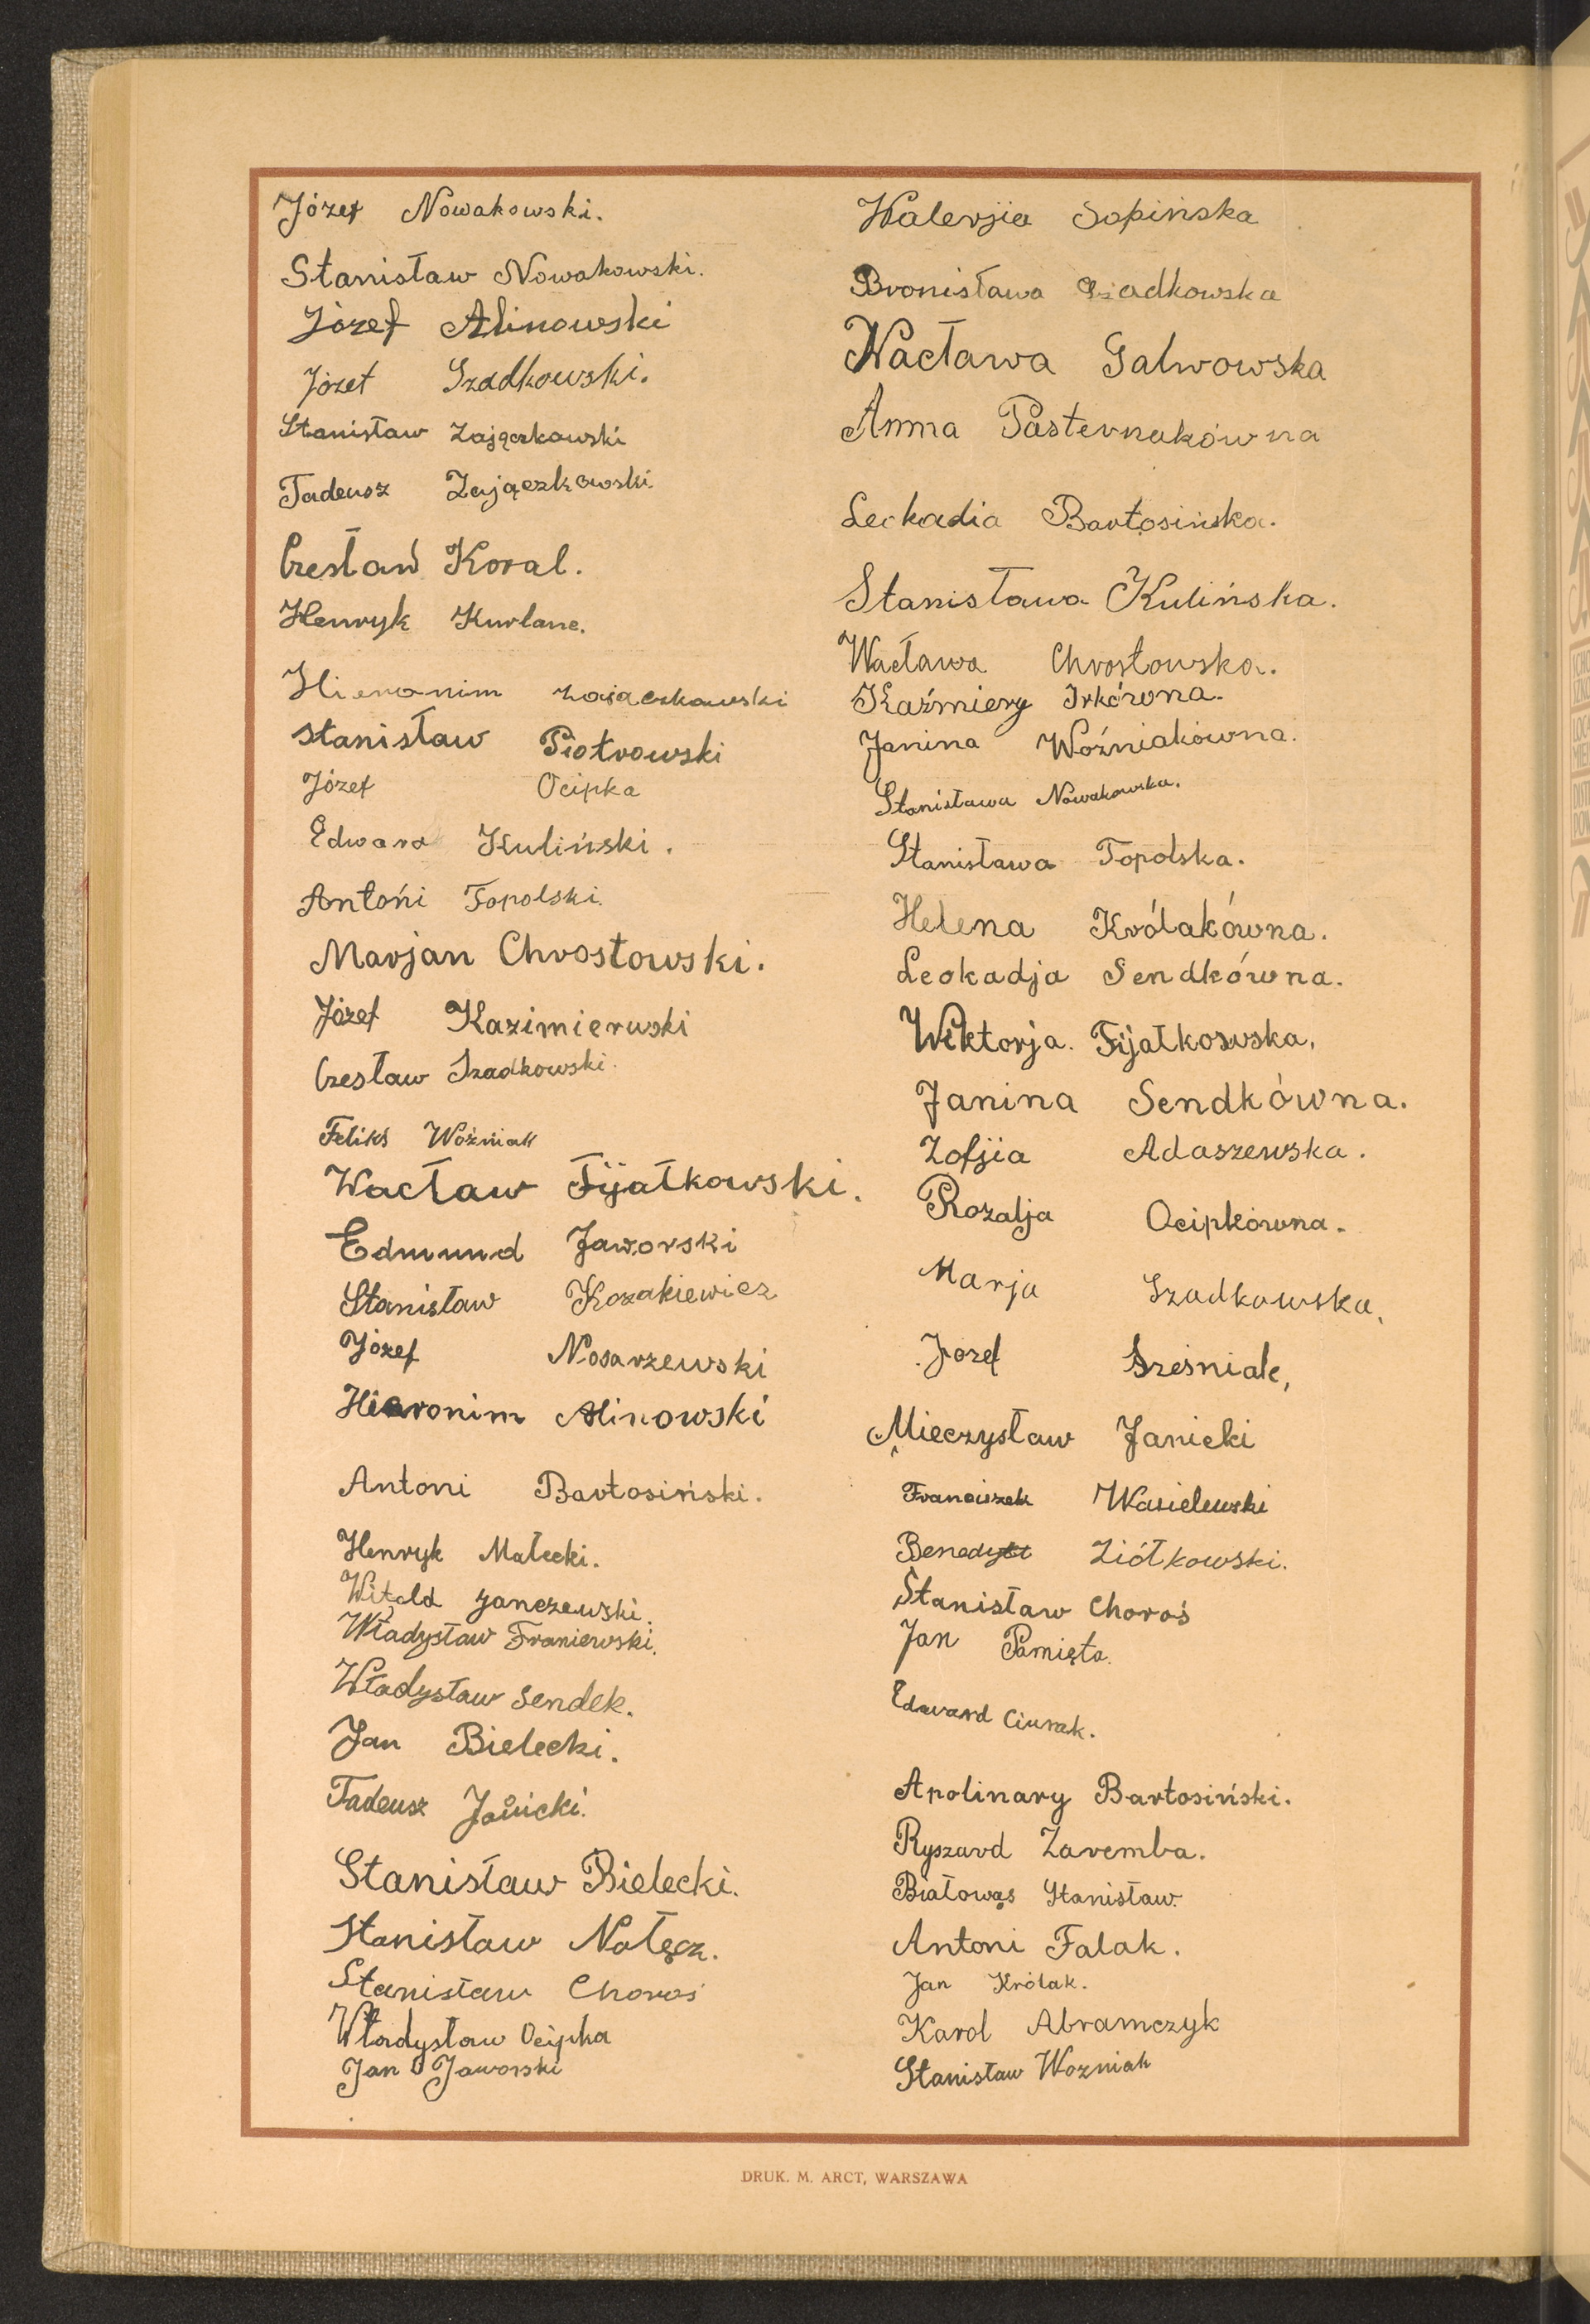 Józef Nowakowski.
Stanisław Nowakowski.
Józef Alinowski
Józef Szadkowski.
Stanisław Zajączkowski
Tadeusz Zajączkowski.
Czesław Koral.
Henryk Kurlanc.
Hieronim Zajaczkowski
Stanisław Piotrowski
Józef Ocipka
Edward Kuliński.
Antońi Topolski.
Marjan Chrostowski.
Józef Kazimierwski
Czesław Szadkowski.
Feliks Woźniak
Wacław Fijałkowski.
Edmund Jaworski
Stanisław Kozakiewicz
Józef Nosarzewski
Hieronim Alinowski
Antoni Bartosiński.
Henryk Małecki.
Witold Janczewski.
Władysław Franiewski.
Władysław Sendek.
Jan Bielecki.
Tadeusz Janicki.
Stanisław Bielecki.
Stanisław Nałęcz.
Stanisław Choroś
Władysław Ocipka
Jan Jaworski
Walerjia Sopińska
Bronisława Szadkowska
Wacława Galwowska
Anna Pasternakówna
Leokadia Bartosińska.
Stanisława Kulińska.
Wacława Chrostowska.
Kaźmiery Irkówna.
Janina Woźniakówna.
Stanisława Nowakowska.
Stanisława Topolska.
Helena Królakówna.
Leokadja Sendkówna.
Wiktorja. Fijałkowska,
Janina Sendkówna.
Zofjia Adaszewska.
Rozalja Ocipkówna.
Marja Szadkowska,
Józef
Mieczysław Janicki
Franciszek Wasielewski
Benedykt Ziółkowski.
Stanisław Choroś
Jan Pamięta.
Edward Ciurak.
Apolinary Bartosiński.
Ryszard Zaremba.
Białowąs Stanisław.
Antoni Falak.
Jan Królak.
Karol Abramczyk
Stanisław Wozniak
DRUK. M. ARCT, WARSZAWA